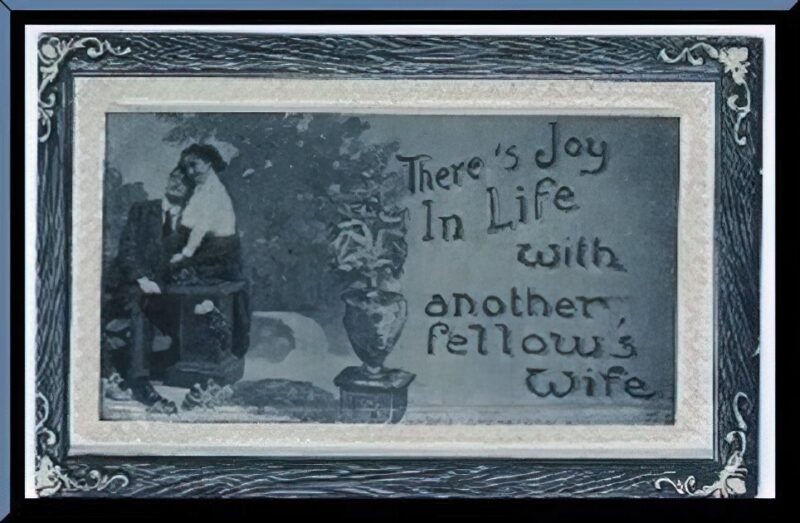 There's Joy
In Life
with
another
fellow's
wife